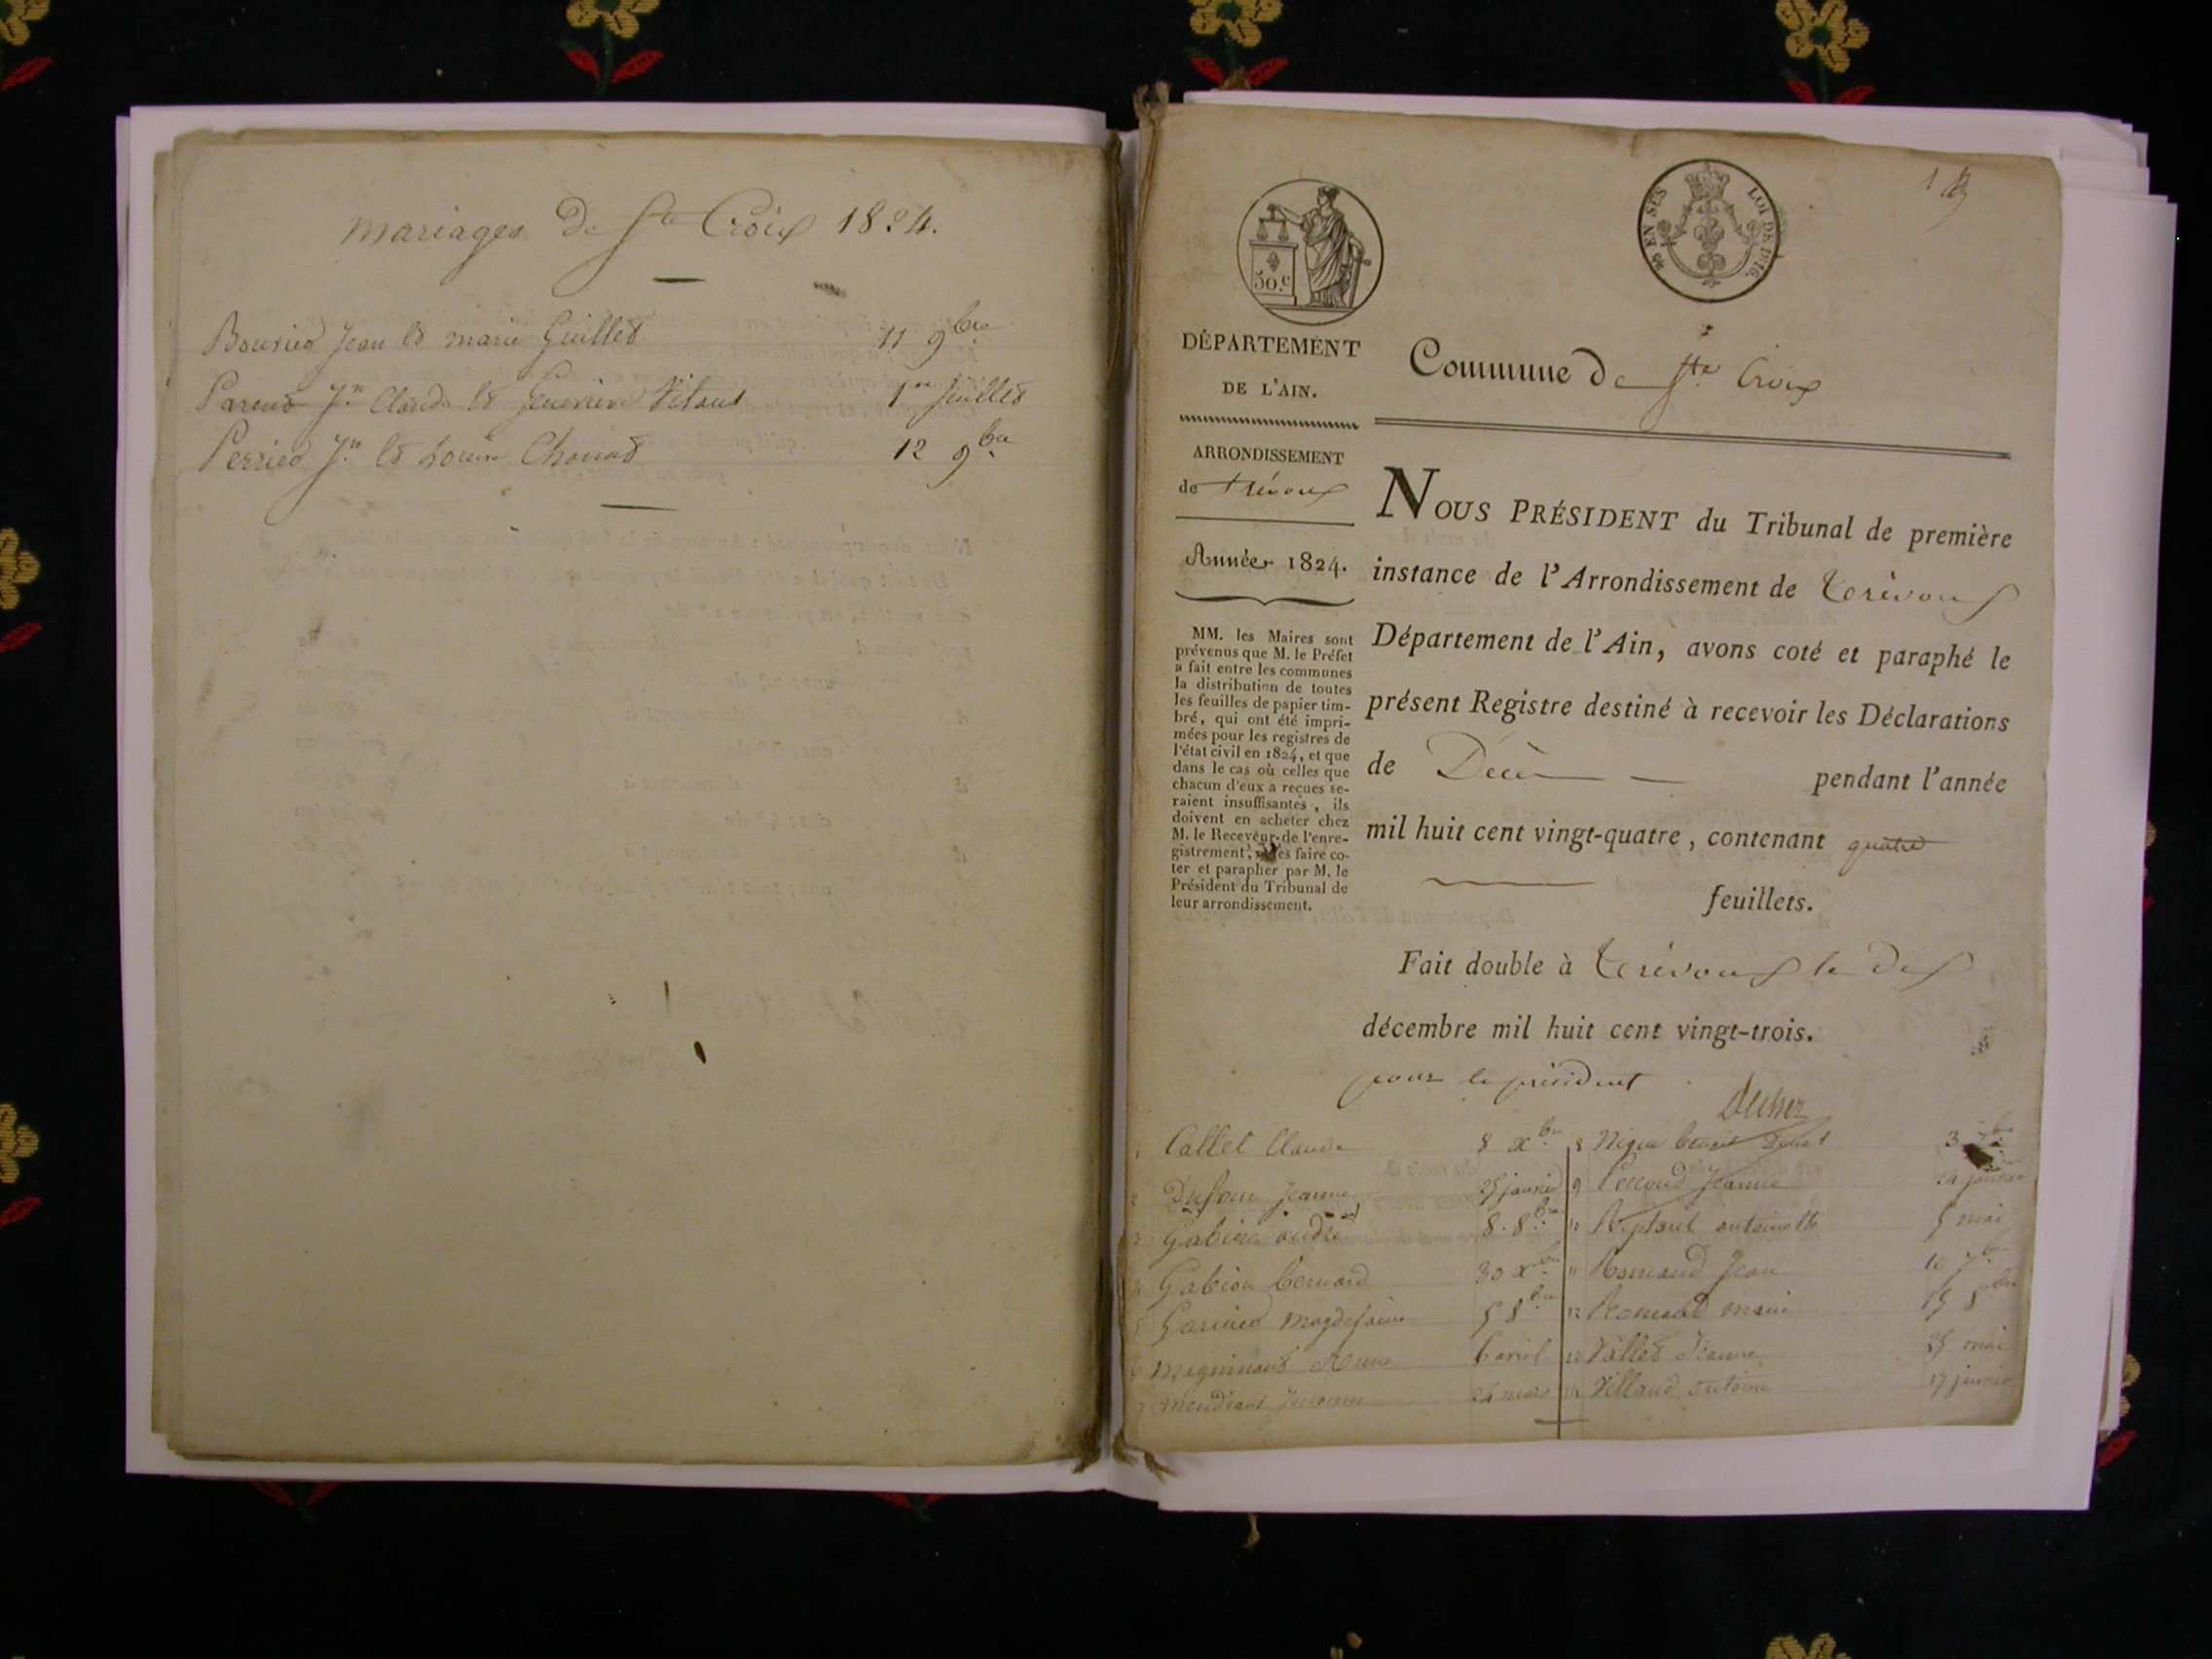 mariages De Ste Croix 1824.
Bouvier Jean et marie Guillet 11 9bre
Parent Jn Claude et Genevieve Vitaut 1er Juillet
Perrier Jn et Louise 12 9bre
1
50.c
EN SUS
LOI DE 1816.
DÉPARTEMENT
DE L'AIN.
ARRONDISSEMENT
de trévoux
Année 1824.
MM. les Maires sont
prévenus que M. le Préfet
a fait entre les communes
la distribution de toutes
les feuilles de papier tim-
bré, qui ont été impri-
mées pour les registres de
l'état civil en 1824, et que
dans le cas où celles que
chacun d'eux a reçues se-
raient insuffisantes, ils
doivent en acheter chez
M. le Receveur de l'enre-
gistrement, les faire co-
ter et parapher par M. le
Président du Tribunal de
leur arrondissement.
Commune De Ste Croix
NOUS PRÉSIDENT du Tribunal de première
instance de l'Arrondissement de trévoux
Département de l'Ain, avons coté et paraphé le
présent Registre destiné à recevoir les Déclarations
de Décès pendant l'année
mil huit cent vingt-quatre, contenant quatre
feuillets.
Fait double à trévoux le dix
décembre mil huit cent vingt-trois.
pour le président
1 Callet Claude 8 Xbre
2 Dufour Jeanne 25 janvier
3 Gabion andré 8. 8bre
4 Gabion bernard 30 Xbre
5 Garnier Magdelaine 5 8bre
6 Anne 6 avril
7 26 mars
8 benoit 3
9 Perroud Jeanne 24 janvier
10 antoinette 5 mai
11 Romand Jean 10 7bre
12 Romand marie 15 8bre
13 Vallet Jeanne 25 mai
14 Villaud antoine 17 janvier